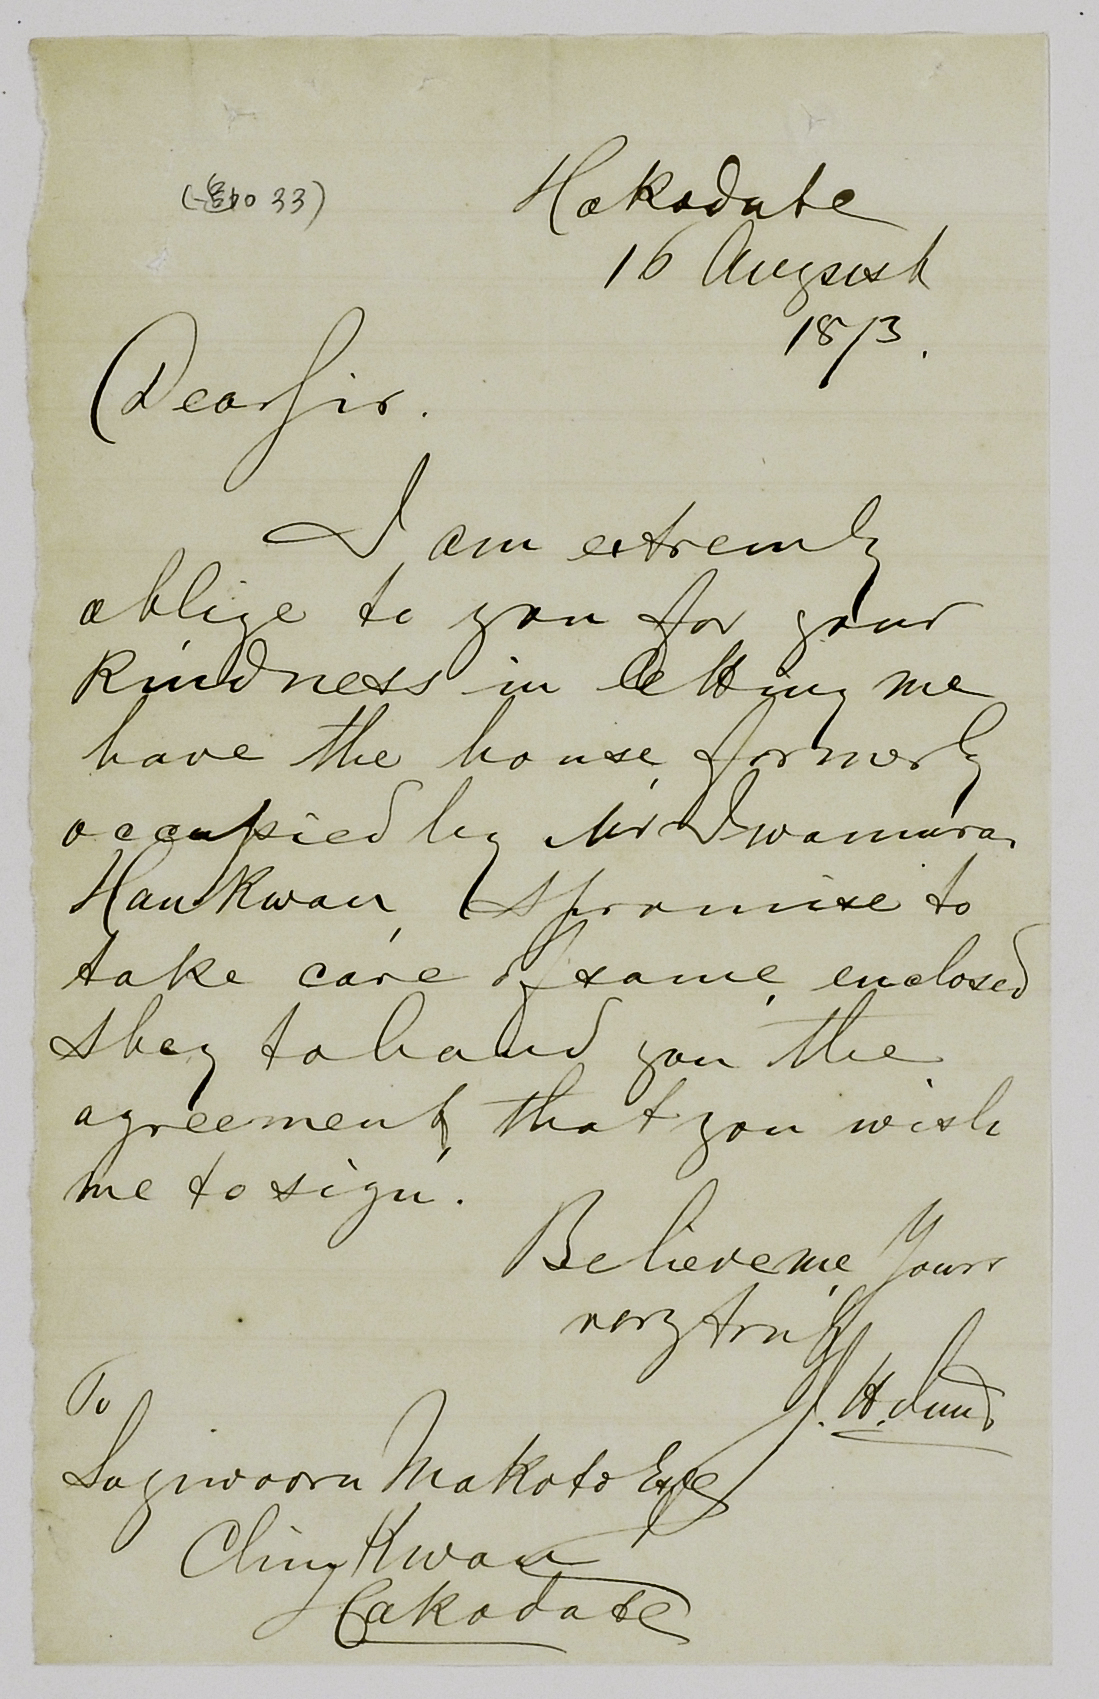 Hakodate
16 August
1873.
Dear Sir.
I am extremly
oblige to you for your
kindness in letting me
have the house formerly
occupied by Mr Iwamura
Hankwan, I promise to
take care of same, enclosed
I beg to hand you the
agreement, that you wish
me to sign.
Believe me Yours
very truly
J. H. Duus
To
Sugiwoora Makoto Esqe
Ching Kwan
Hakodate